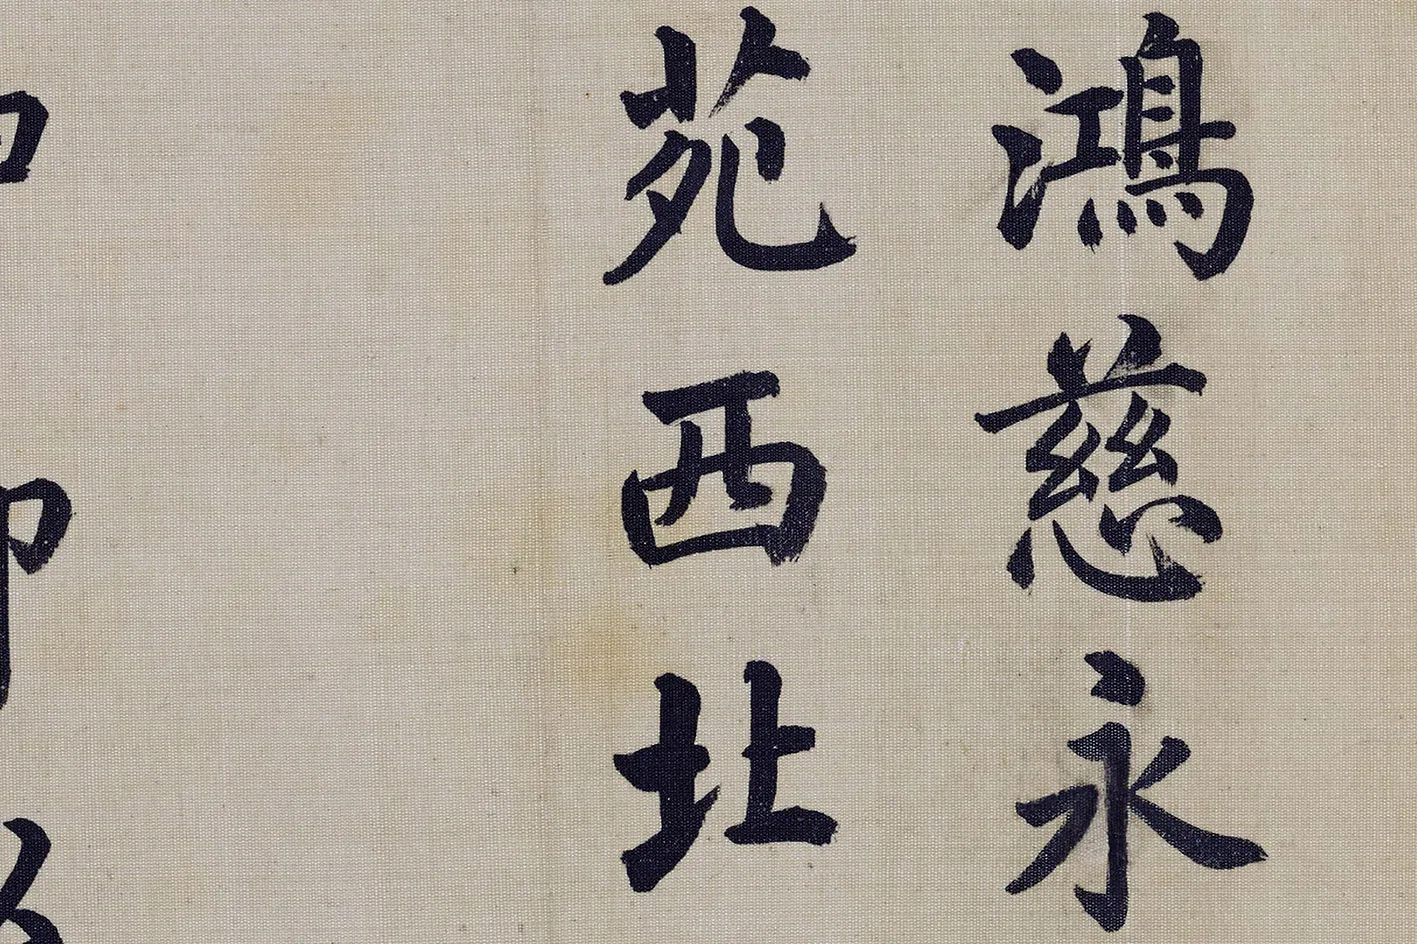 鴻慈永
苑西北